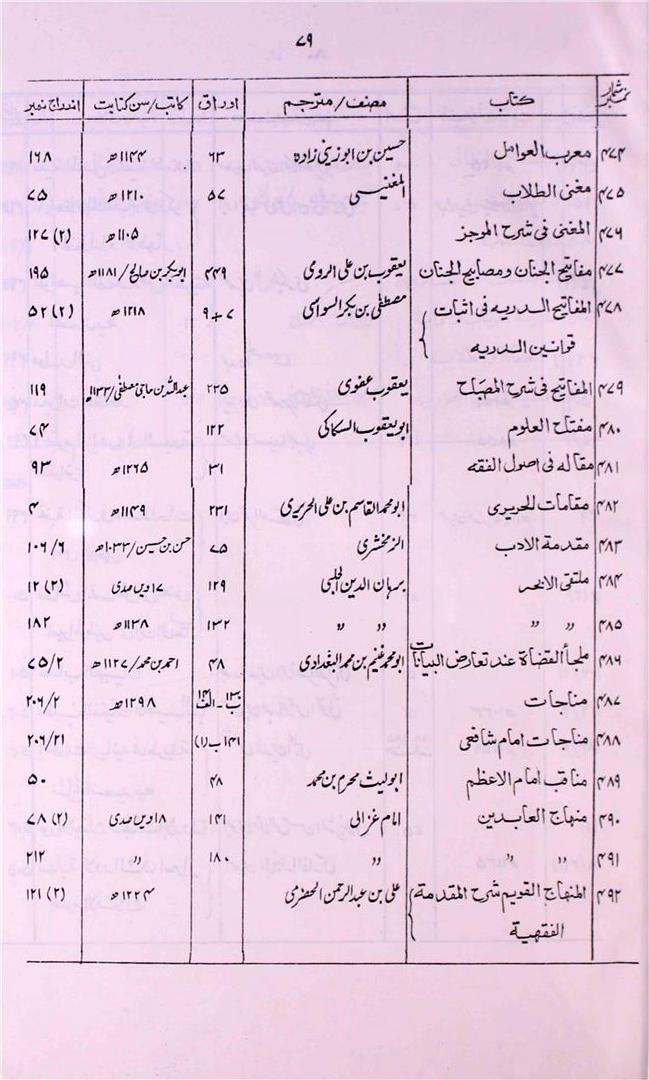 ۷۹
نمبر شمار کتاب مصنف/مترجم اوراق کاتب/سن کتابت اندراج نمبر
۴۷۴ معرب العوامل حسین بن ابوزینی زاده ۶۳ ۱۱۴۴ھ ۱۶۸
۴۷۵ مغنی الطلاب المغنیسی ۵۷ ۱۲۱۰ھ ۷۵
۴۷۶ المغنی فی شرح الموجز ۱۱۰۵ھ ۱۲۷ (۲)
۴۷۷ مفاتیح الجنان ومصابیح الجنان یعقوب بن علی الرومی ۴۴۹ ابوبکر بن صالح/۱۱۸۱ھ ۱۹۵
۴۷۸ المفاتیح الدریه فی اثبات مصطفی بن بکر السواسی ۷+۹ ۱۲۱۸ھ ۵۲ (۲)
قوانین الدریه
۴۷۹ المفاتیح فی شرح المصباح یعقوب عفوی ۲۳۵ عبداللہ بن حاجی مصطفی/۱۱۳۳ھ ۱۱۹
۴۸۰ مفتاح العلوم ابو یعقوب السکاکی ۱۲۲ ۷۴
۴۸۱ مقاله فی اصول الفقه ۳۱ ۱۲۶۵ھ ۹۳
۴۸۲ مقامات الحریری ابو محمد القاسم بن علی الحریری ۲۳۱ ۱۱۴۹ھ ۴
۴۸۳ مقدمة الادب الزمخشری ۷۵ حسن بن حسین/۱۰۳۳ھ ۱۰۶/۶
۴۸۴ ملتقی الابحر برہان الدین الحلبی ۱۲۹ ۱۷ویں صدی ۱۲ (۲)
۴۸۵ ״ ״ ״ ״ ۱۳۲ ۱۱۳۸ھ ۱۸۲
۴۸۶ ملجأ القضاة عند تعارض البیانات ابو محمد غنیم بن محمد البغدادی ۴۸ احمد بن محمد/۱۱۲۷ھ ۷۵/۲
۴۸۷ مناجات ۱۳۰ب-۱۴۱الف ۱۲۹۸ھ ۲۰۶/۲
۴۸۸ مناجات امام شافعی ۱۴۱ب(۱) ۲۰۶/۲۱
۴۸۹ مناقب امام الاعظم ابو لیث محرم بن محمد ۴۸ ۵۰
۴۹۰ منہاج العابدین امام غزالی ۱۴۱ ۱۸ویں صدی ۷۸ (۲)
۴۹۱ ״ ״ ״ ۱۸۰ ״ ۲۱۲
۴۹۲ المنہاج القویم شرح المقدمة علی بن عبدالرحمن الحفری ۱۲۲۴ھ ۱۲۱ (۲)
الفقہیة